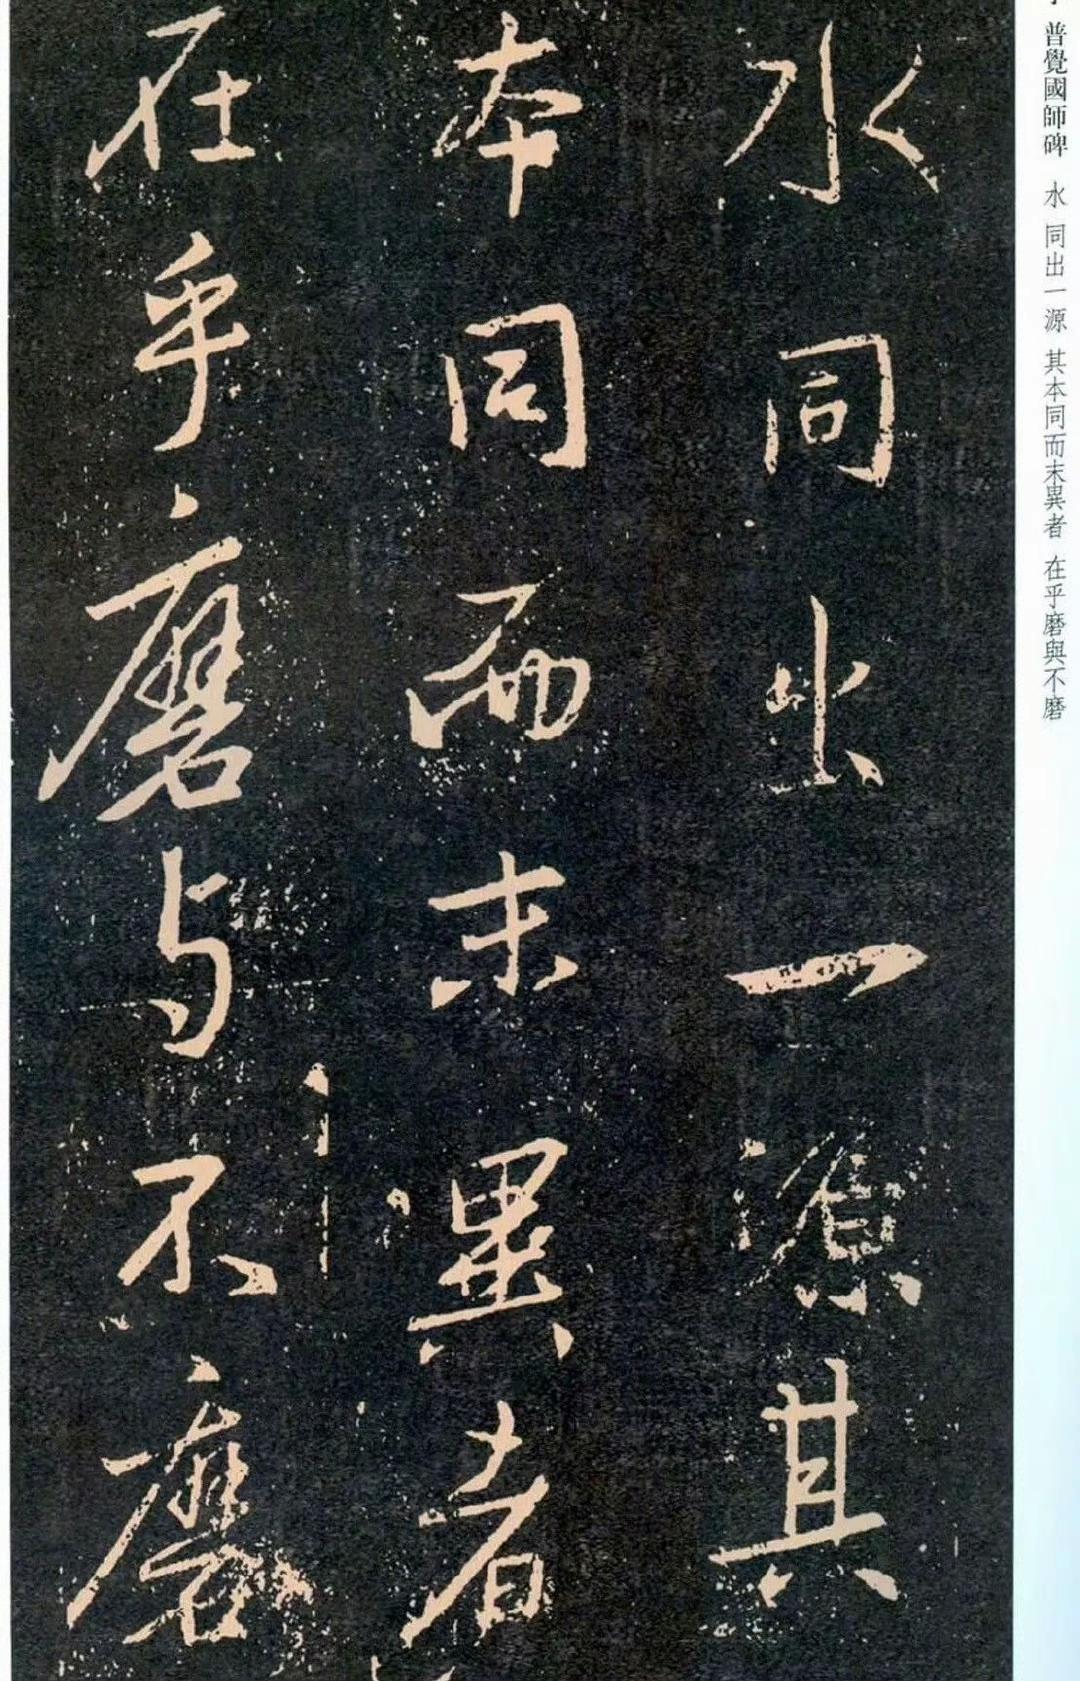 普覺國師碑 水 同出一源 其本同而末異者 在乎磨與不磨
水同出一源其
本同而末異者
在乎磨与不磨